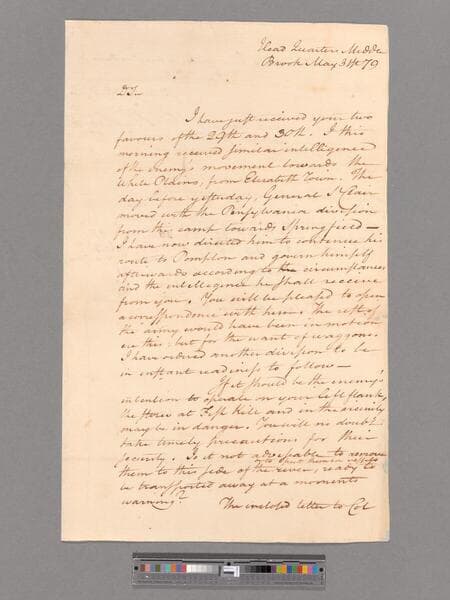 Head Quarters Middle
Brook May 31st 79
Sr.
I have just received your two
favours of the 29th and 30th. I this
morning received similar intelligence
of the enemy's movement towards the
White Plains, from Elizabeth Town. The
day before yesterday, General St Clair
moved with the Pensylvania division
from this camp towards Springfield —
I have now directed him to continue his
route to Pompton and govern himself
afterwards according to the circumstances
and the intelligence he shall receive
from you. You will be pleased to open
a correspondence with him. The rest of
the army would have been in motion
ere this; but for the want of waggons.
I have ordered another division to be
in instant readiness to follow —
If it should be the enemy's
intention to operate on your left flank,
the stores at Fish Kill and in the vicinity
may be in danger. You will no doubt
take timely precautions for their
security. Is it not adviseable to remove
to put them in vessels
them to this side of the river, ready to
be transported away at a moments
warning?
The inclosed letter to Col